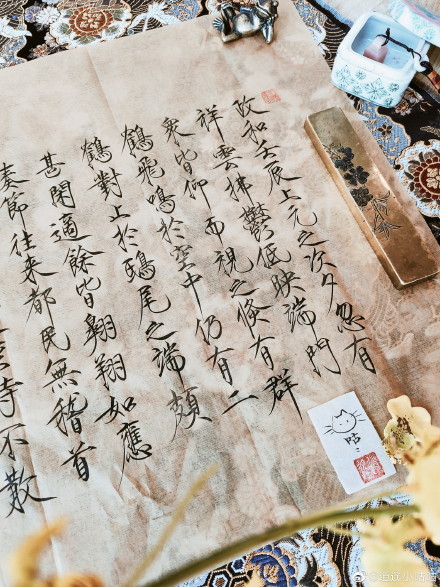 政和壬辰上元之次夕忽有
祥雲拂鬱低映端門
衆皆仰而視之倏有群
鶴飛鳴於空中仍有二
鶴對止於鴟尾之端頗
甚閑適餘皆翱翔如應
奏節往來都民無稽首
不散
咕